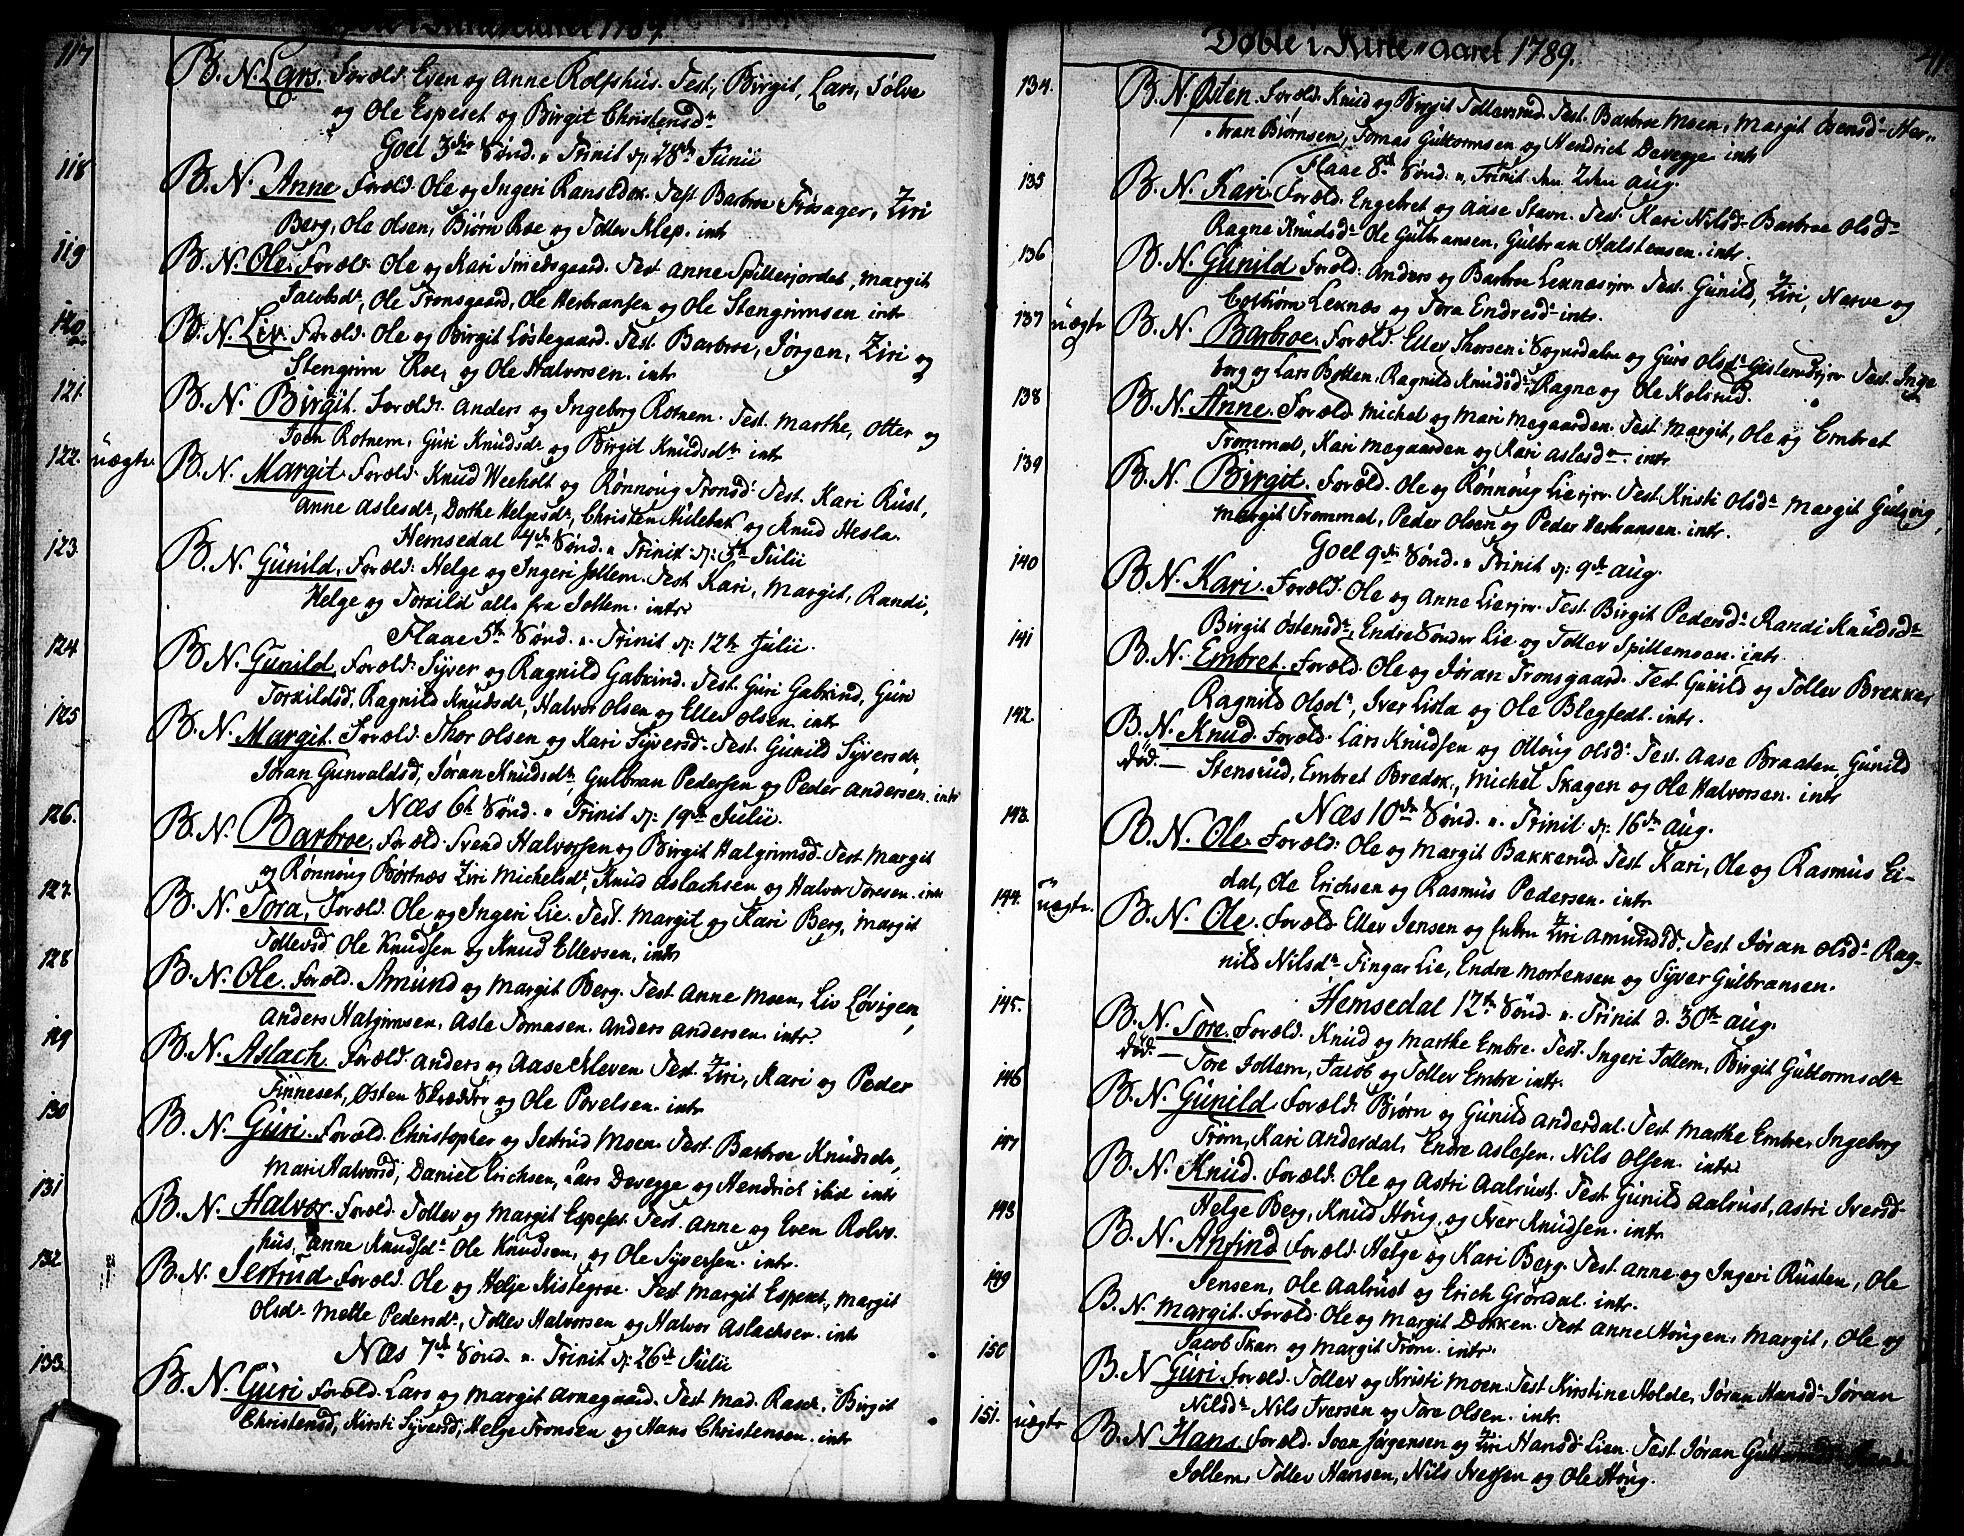 117 B. N. Lars. Foræld. Even og Anne Rolfshus. Test, Birgit, Lars, Sølve
og Ole Espeset og Birgit Christensdr
Goel 3die Sønd. a Trinit d: 28de Junii
118 B. N. Anne Foræld. Ole og Ingeri Ransedok. Test Barbroe Frøsager, Ziri
Berg, Ole Olsen, Biørn Roe og Tollev Klep. intr
119 B. N. Ole. Foræld. Ole og Kari Smedsgaard. Test. Anne Spillerjordet, Margit
Jacobsdr, Ole Tronsgaard, Ole Herbransen og Ole Stengrimsen intr
120 B. N. Liv. Foræld. Ole og Birgit Løstegaard. Test. Barbroe, Jørgen, Ziri og
Stengrim Roe, og Ole Halvorsen. intr
121. B. N. Birgit. Foræld. Anders og Ingeborg Rotnem. Test. Marthe, Otter og
Joen Rotnem, Guri Knudsdr og Birgit Knudsdr intr
122. uægte B. N. Margit Foræld. Knud Weeholt og Rønnoug Tronsd. Test. Kari Rust,
Anne Aslesdr, Dorthe Helgesdr, Christen Hillebek og Knud Hesla.
Hemsedal 4de Sønd. a Trinit d: 5te Julii
123. B. N. Gunild. Foræld. Helge og Ingeri Jollem. Test Kari, Margit, Randi,
Helge og Torkild alle fra Jollem. intr
Flaae 5te Sønd. a. Trinit d: 12te Julii.
124. B. N. Gunild, Foræld. Syver og Ragnild Gabkind. Test. Guri Gabkind, Guri
Torkildsd, Ragnild Knudsdr, Halvor Olsen og Ellev Olsen. intr
125 B. N. Margit. Foræld. Thor Olsen og Kari Syversd. Test. Gunild Syversdr,
Jøran Gunvaldsd, Jøran Knudsdr, Gulbran Pedersen og Peder Andersen. intr
Næs 6te Sønd. a Trinit d: 19de Julii.
126. B. N. Barbroe, Foræld. Svend Halvorsen og Birgit Halgrimsd. Test. Margit
og Rønnoug Børtnæs Ziri Michelsdr, Knud Aslachsen og Halvor Toresen. intr
127. B. N. Tora, Foræld. Ole og Ingeri Lie. Test. Margit og Kari Berg, Margit
Tollevsd Ole Knudsen og Knud Ellevsen, intr
128 B. N. Ole. Foræld. Amund og Margit Berg. Test. Anne Moen, Liv Løvigen,
Anders Halgrimsen, Asle Tomasen. Anders Andersen. intr.
129 B. N. Aslach Foræld. Anders og Aase Kleven Test. Ziri, Kari og Peder
Finneset, Østen Skrædder og Ole Povelsen. intr
130 B. N. Guri. Foræld. Christopher og Jertrud Moen. Test. Barbroe Knudsdr,
Mari Halvorsd, Daniel Erichsen, Lars Devegge og Hendrich ibid intr
131 B. N. Halvor. Foræld. Tollev og Margit Espeset. Test. Anne og Even Rolvs-
hus, Anne Knudsdr Ole Knudsen, og Ole Syversen. intr.
132 B. N. Jertrud Foræld. Ole og Helje Kistegroe. Test Margit Espeset, Margit
Olsdr Mette Pedersdr, Tollev Halvorsen og Halvor Aslachsen. intr
Næs 7de Sønd. a. Trinit d: 26de Julii
133. B. N. Guri Foræld. Lars og Margit Arnegaard. Test Mad. Rasch, Birgit
Christensd, Kirsti Syversd, Helge Tronsen og Hans Christensen. intr
Døbte i Kirke-Aaret 1789. 41
134. B. N. Østen. Foræld. Knud og Birgit Tollevsrud. Test. Barbroe Moen, Margit Osensdr Her-
Ivan Biørnsen, Tomas Guttormsen og Hendrich Devegge intr
Flaae 8de Sønd. a, Trinit. den 2den Aug.
135 B. N. Kari. Foræld. Engebret og Aase Stavn. Test. Kari Nilsdr Barbroe Olsdr
Ragne Knudsdr Ole Gulbransen, Gulbran Halstensen. intr.
136 B. N. Gunild Foræld. Anders og Barbroe Leknæsejer. Test. Gunild, Ziri, Narve og
Torbiørn Leknæs og Tora Endresdr intr.
137 uægte B. N. Barbroe. Foræld. Ellev Thorsen i Sognedalen og Guro Olsdr Gislerudejer Test. Inge
borg og Lars Botten. Ragnild Knudsdr, Ragne og Ole Kolsrud.
138 B. N. Anne. Foræld. Michel og Mari Megaarden. Test. Margit, Ole og Embret
Trommal, Kari Megaarden og Kari Aslesdr. intr
139 B. N. Birgit. Foræld. Ole og Rønnoug Lieejer. Test. Kristi Olsdr Margit Gulsvig,
Margit Trommal, Peder Olsen og Peder Herbransen. intr.
Goel 9de Sønd. a Trinit d: 9de Aug.
140 B. N. Kari. Foræld. Ole og Anne Lieejer. Test. Birgit Pedersdr Randi Knudsdr
Birgit Østensdr, Endre Søndre Lie og Tollev Spillemsen. intr.
141 B. N. Embret. Foræld. Ole og Jøran Tronsgaard. Test. Gunild og Tollev Brekke,
Ragnild Olsdr, Iver Lisla og Ole Blegsedt. intr.
142. B. N. Knud. Foræld. Lars Knudsen og Olloug Olsd. Test. Aase Braaten, Gunild
død. — Stensrud, Embret Bredek., Michel Skagen og Ole Halvorsen. intr
Næs 10de Sønd. a. Trinit d: 16de Aug.
143. B. N. Ole. Foræld. Ole og Margit Bakkerud. Test. Kari, Ole og Rasmus Ei-
dal, Ole Erichsen og Rasmus Pedersen. intr.
144. uægte. B. N. Ole. Foræld Ellev Jensen og Enken Ziri Amundsd. Test Jøran Olsdr Rag-
nild Nilsdr Fingar Lie, Endre Mortensen og Syver Gulbransen.
Hemsedal 12te Sønd. a. Trinit d. 30te Aug.
145. B. N. Tore. Foræld. Knud og Marthe Embre. Test. Ingeri Jollem, Birgit Guttormsdr
død. — Tore Jollem, Jacob og Tollev Embre intr.
146 B. N. Gunild Foræld. Biørn og Gunild Anderdal. Test Marthe Embre, Ingeborg
Trøm, Kari Anderdal, Endre Aslesen, Nils Olsen. intr.
147 B. N. Knud. Foræld. Ole og Astri Aalrust. Test Gunild Aalrust, Astri Iversdr
Helge Berg, Knud Houg, og Iver Knudsen. intr.
148 B. N. Anfind Foræld. Helge og Kari Berg. Test. Anne og Ingeri Rusten, Ole
Jensen, Ole Aalrust og Erich Grøndal. intr.
149 B. N. Margit. Foræld. Ole og Margit Dokken. Test Anne Hougen, Margit, Ole og
Jacob Skar og Margit Trøm. intr.
150 B. N Guri Foræld. Tollev og Kristi Moen. Test Kirstine Holde, Jøran Hansdr Jøran
Nilsdr Nils Iversen og Tore Olsen. intr.
151. uægte B. N Hans. Foræld. Ivar Jørgensen og Ziri Hansd. Lien. Test. Jøran
Jollem, Tollev Hansen, Nils Iversen og Ole Houg.